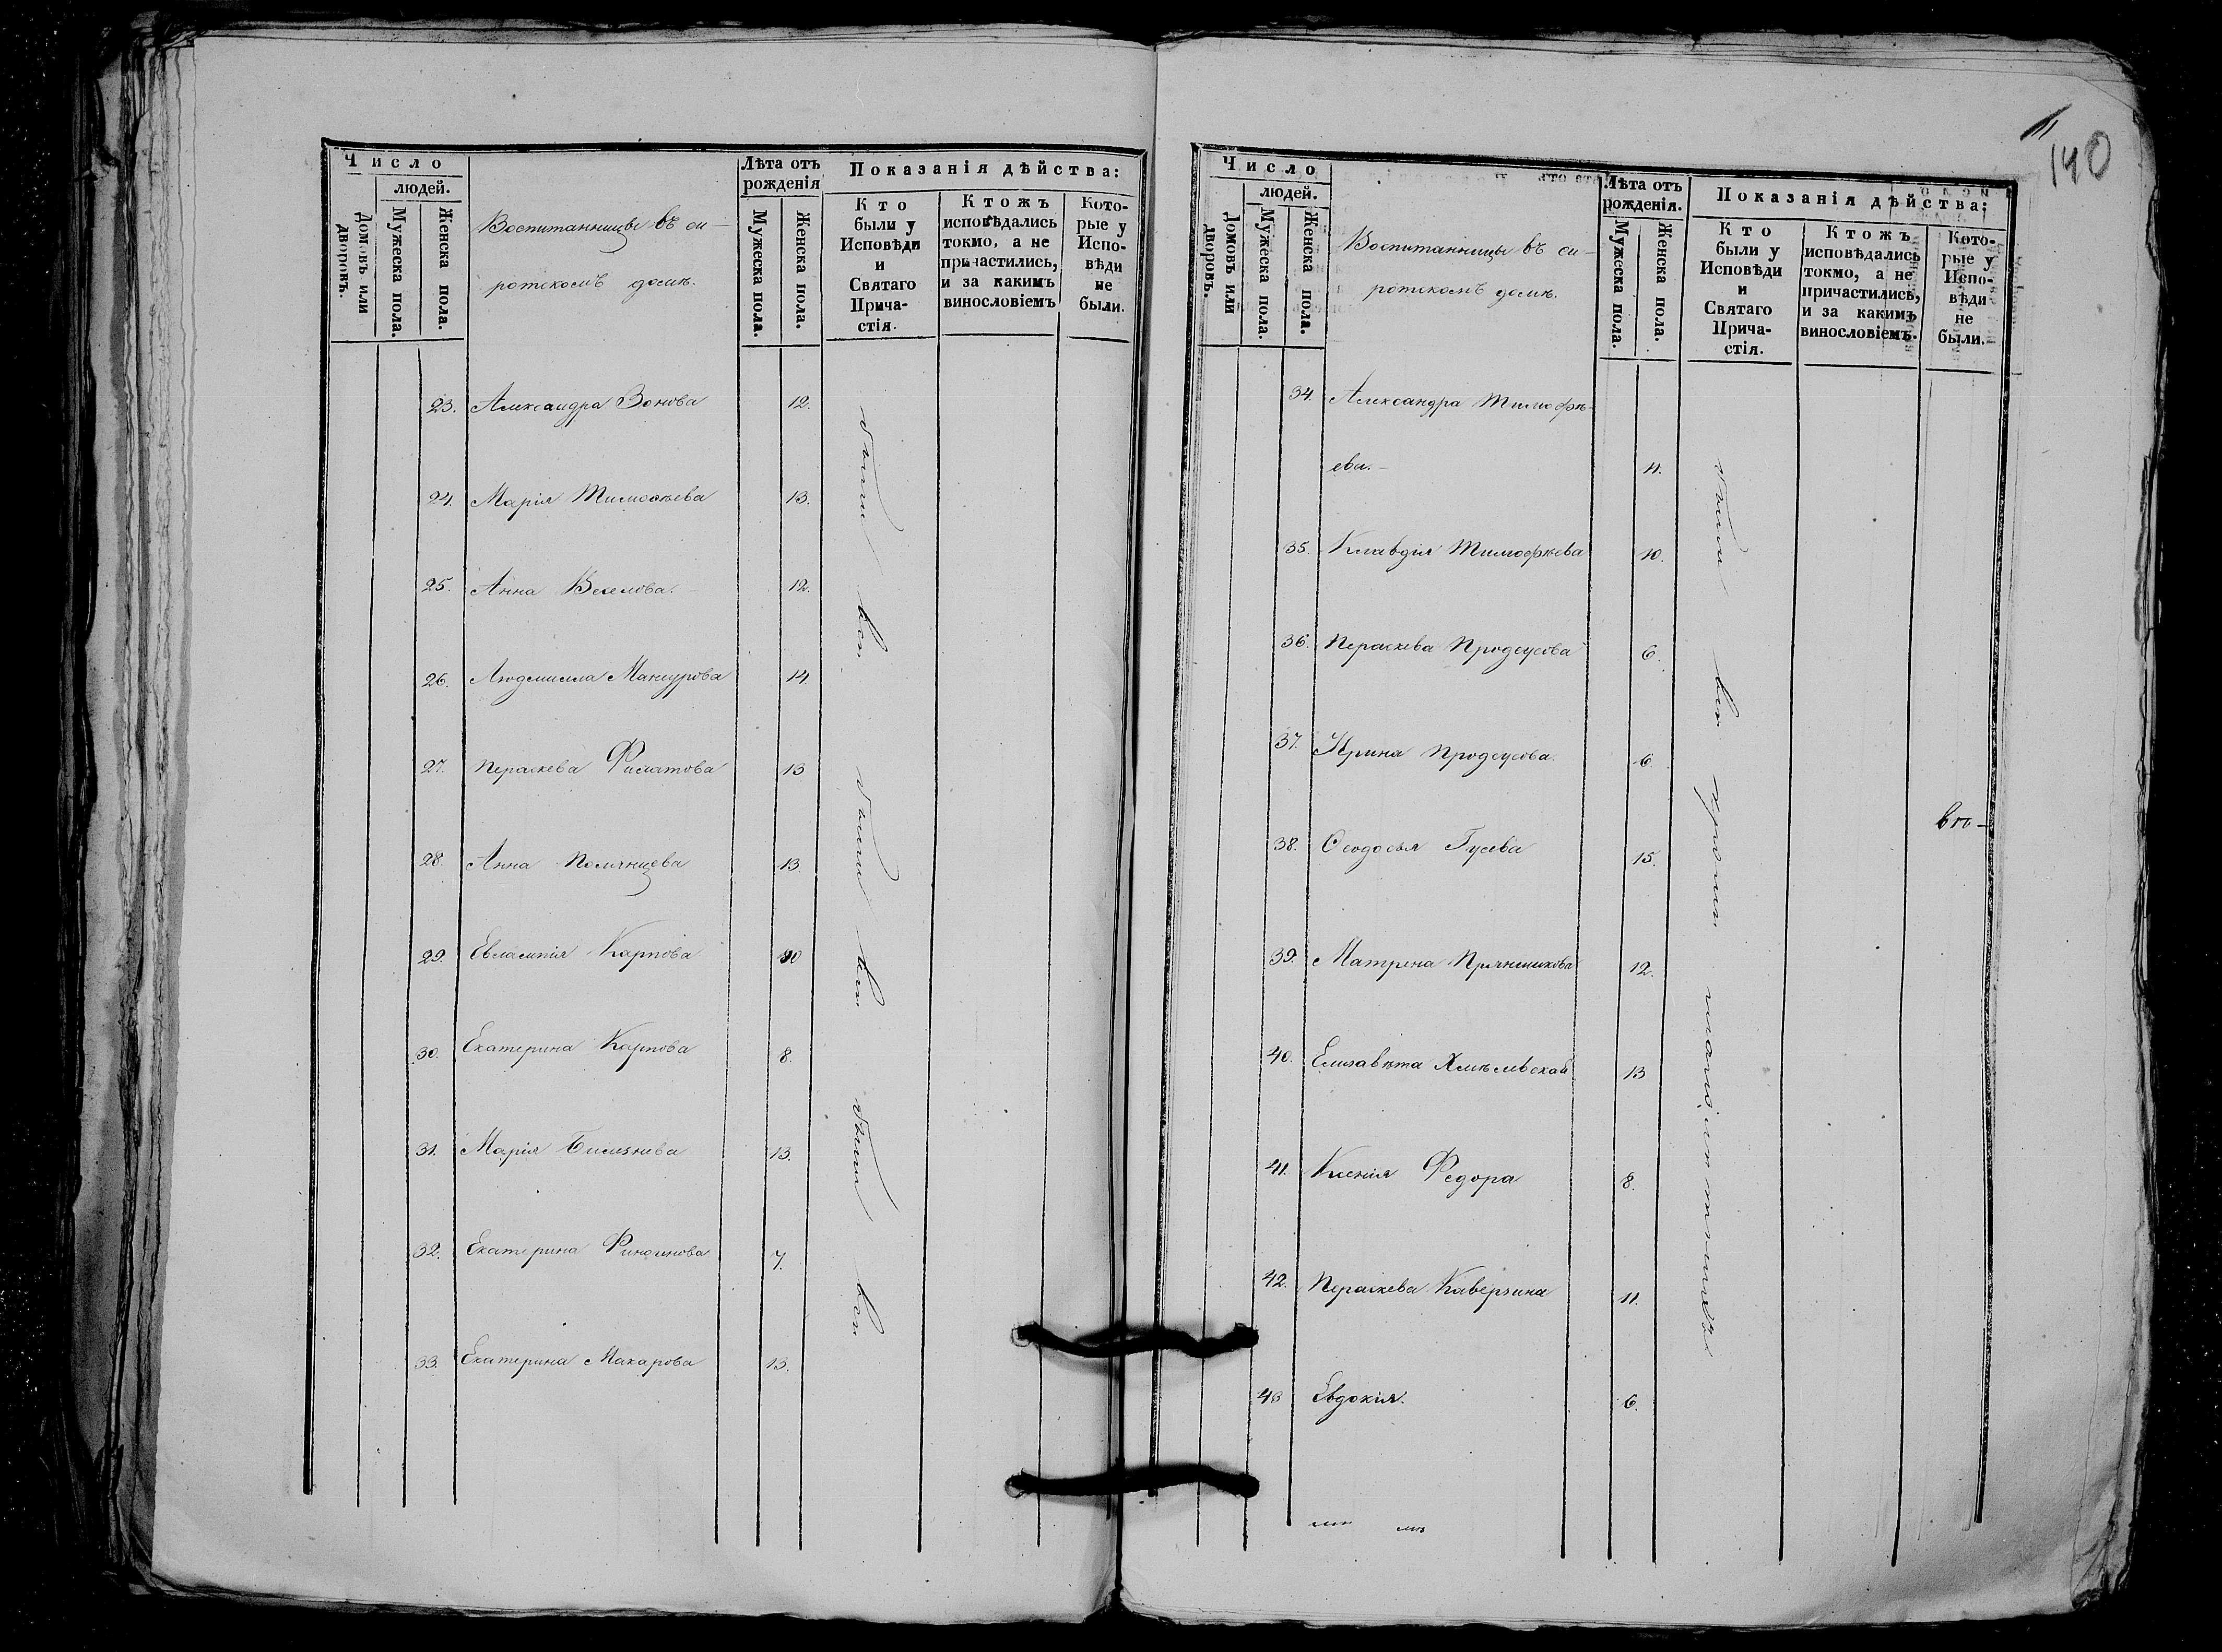 Число
людей.
Домовъ или дворовъ.
Мужеска пола.
Женска пола.
Воспитанницы въ си-
ротскомъ домѣ.
Лѣта отъ рожденія
Мужеска пола.
Женска пола.
Показанія дѣйства:
Кто были у Исповѣди и Святаго Прича-стія.
Ктожъ исповѣдались токмо, а не причастились, и за какимъ винословіемъ
Кото-рые у Испо-вѣди не были.
23. Александра Зонова 12.
24. Марія Тимоѳѣева 13.
25. Анна Веселова. 12.
26. Людмилла Мансурова 14.
27. Параскева Филатова 13
28. Анна Полянцева 13.
29. Евлампія Карпова 10
30. Екатерина Карпова 8.
31. Марія 13.
32. Екатерина 7.
33. Екатерина Макарова 13.
были всѣ были всѣ были всѣ
140
Число
людей.
Домовъ или дворовъ.
Мужеска пола.
Женска пола.
Воспитанницы въ си-
ротскомъ домѣ.
Лѣта отъ рожденія.
Мужеска пола.
Женска пола.
Показанія дѣйства:
Кто были у Исповѣди и Святаго Прича-стія.
Ктожъ исповѣдались токмо, а не причастились, и за какимъ винословіемъ.
Кото-рые у Испо-вѣди не были.
34. Александра Тимофѣ-
ева. 11.
35. Клавдія Тимофѣева 10.
36. Параскева Продеусова 6.
37. Ирина Продеусова 6.
38. Ѳеодосья Гусева 15.
39. Матрена Прянишникова 12.
40. Елизавѣта Хмѣлевская 13
41. Ксенія Федора 8.
42. Параскева Каверзина 11.
43 Евдокія. 6.
были всѣ кромѣ малолѣтнихъ